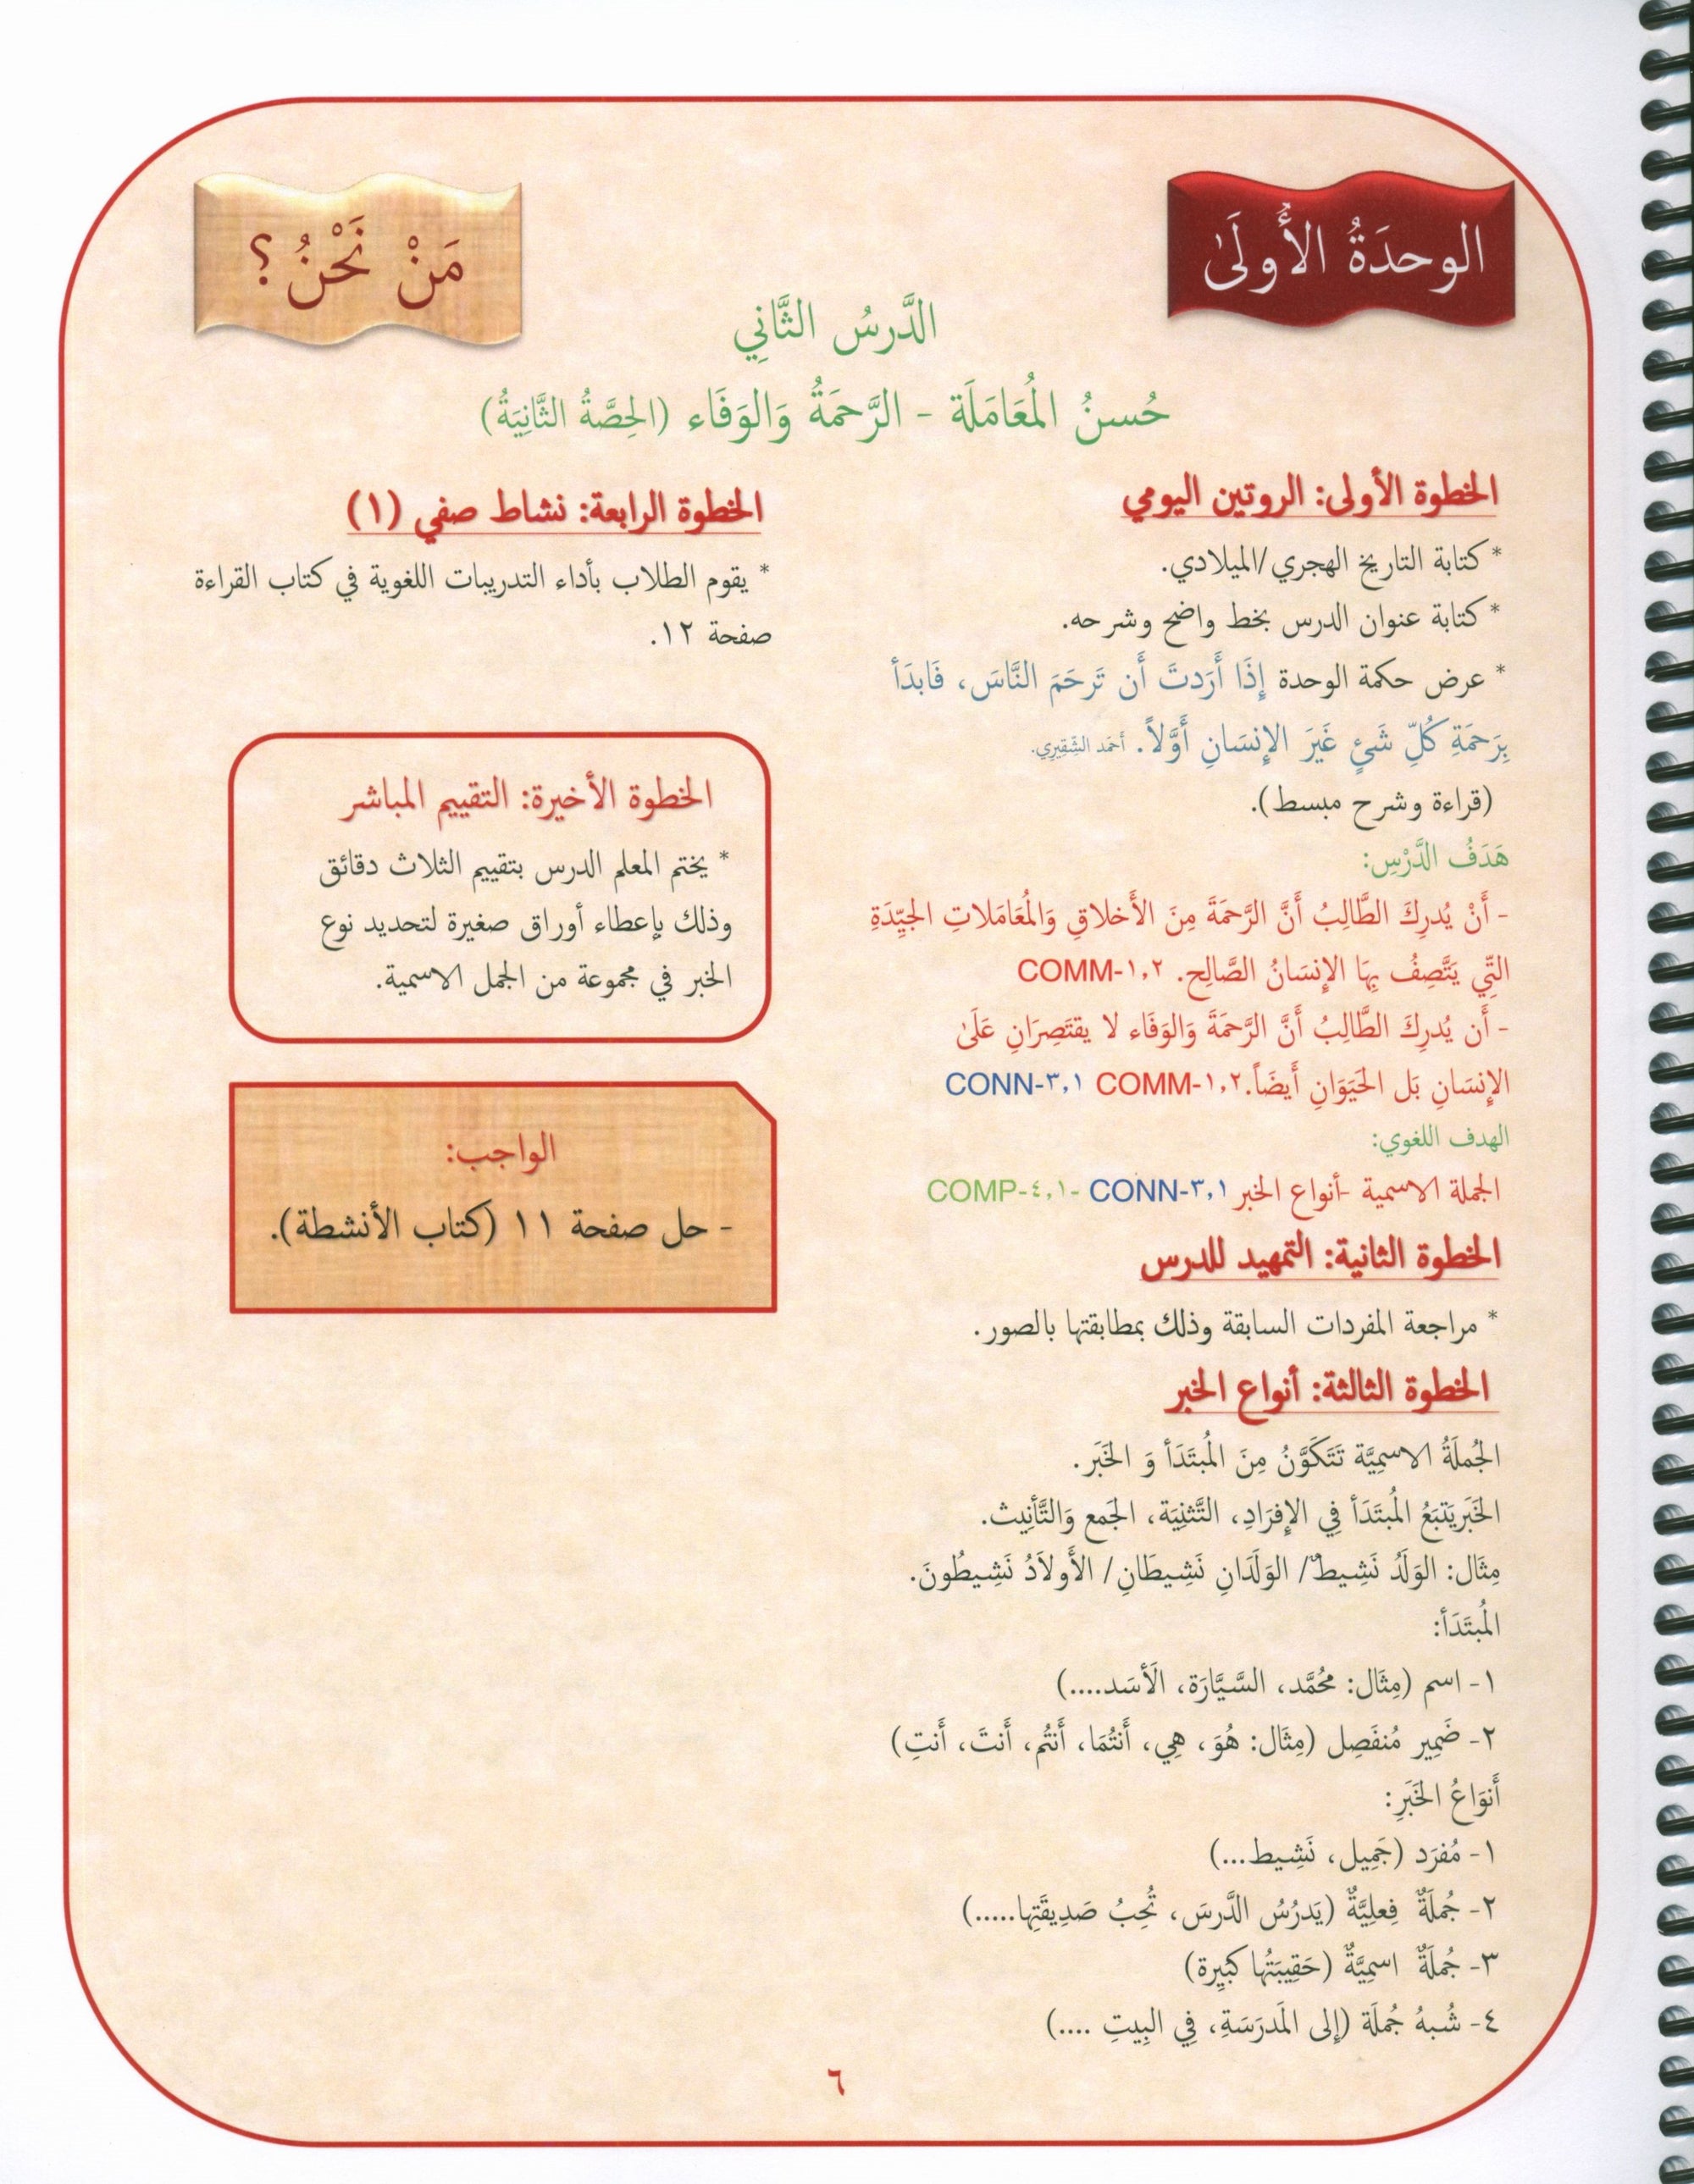 الوحدَةُ الأُولَىٰ
مَنْ نَحْنُ؟
الدَّرسُ الثَّانِي
حُسنُ المُعَامَلَة - الرَّحمَةُ وَالوَفَاء (الحِصَّةُ الثَّانِيَةُ)
الخطوة الأولى: الروتين اليومي
* كتابة التاريخ الهجري/الميلادي.
* كتابة عنوان الدرس بخط واضح وشرحه.
* عرض حكمة الوحدة إِذَا أَرَدتَ أَن تَرحَمَ النَّاسَ، فَابدَأ
بِرَحمَةِ كُلِّ شَيٍ غَيَرَ الإِنسَانِ أَوَّلاً. أحمَد الشِّقِيرِي.
(قراءة وشرح مبسط).
هَدَفُ الدَّرْسِ:
- أَنْ يُدرِكَ الطَّالِبُ أَنَّ الرَّحمَةَ مِنَ الأَخلاقِ وَالمُعَامَلاتِ الجَيِّدَةِ
التِّي يَتَّصِفُ بِهَا الإِنسَانُ الصَّالِح. COMM-١,٢
- أَن يُدرِكَ الطَّالِبُ أَنَّ الرَّحمَةَ وَالوَفَاء لا يقتَصِرَانِ عَلَىٰ
الإِنسَانِ بَل الحَيَوَانِ أَيضَاً. COMM-١,٢ CONN-٣,١
الهدف اللغوي:
الجملة الاسمية -أنواع الخبر CONN-٣,١ -COMP-٤,١
الخطوة الثانية: التمهيد للدرس
* مراجعة المفردات السابقة وذلك بمطابقتها بالصور.
الخطوة الثالثة: أنواع الخبر
الجُملَةُ الاسمِيَّة تَتَكَوَّنُ مِنَ المُبتَدَأ وَ الخَبَر.
الخَبَريَتبَعُ المُبتَدَأ فِي الإِفرَادِ، التَّثنِيَة، الجَمع وَالتَّأنِيث.
مِثَال: الوَلَدُ نَشِيطٌ/ الوَلَدَانِ نَشِيطَانِ/ الأَولاَدُ نَشِيطُونَ.
المُبتَدَأ:
١- اسم (مِثَال: مُحَمَّد، السَّيَّارَة، الَأسَد....)
٢- ضَمِير مُنفَصِل (مِثَال: هُوَ، هِي، أَنتُمَا، أَنتُم، أَنتَ، أَنتِ)
أَنوَاعُ الخَبَرِ:
١- مُفرَد (جَمِيل، نَشِيط...)
٢- جُملَةٌ فِعلِيَّةٌ (يَدرُسُ الدَّرسَ، تُحِبُ صَدِيقَتِها.....)
٣- جُملَةٌ اسمِيَّةٌ (حَقِيبَتُها كَبِيرة)
٤- شُبهُ جُملَة (إلى المَدرَسَةِ، فِي البِيتِ ....)
الخطوة الرابعة: نشاط صفي (١)
* يقوم الطلاب بأداء التدريبات اللغوية في كتاب القراءة
صفحة ١٢.
الخطوة الأخيرة: التقييم المباشر
* يختم المعلم الدرس بتقييم الثلاث دقائق
وذلك بإعطاء أوراق صغيرة لتحديد نوع
الخبر في مجموعة من الجمل الاسمية.
الواجب:
- حل صفحة ١١ (كتاب الأنشطة).
٦